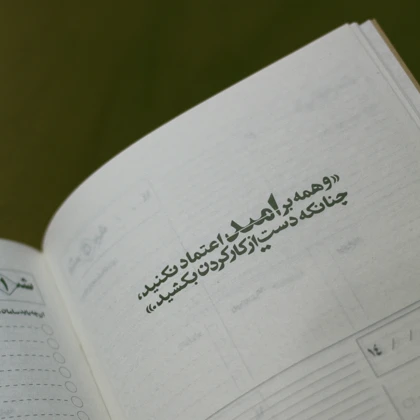 «و همه بر امید، اعتماد نکنید،
چنانکه دست از کار کردن بکشید.»
۱۴ / /